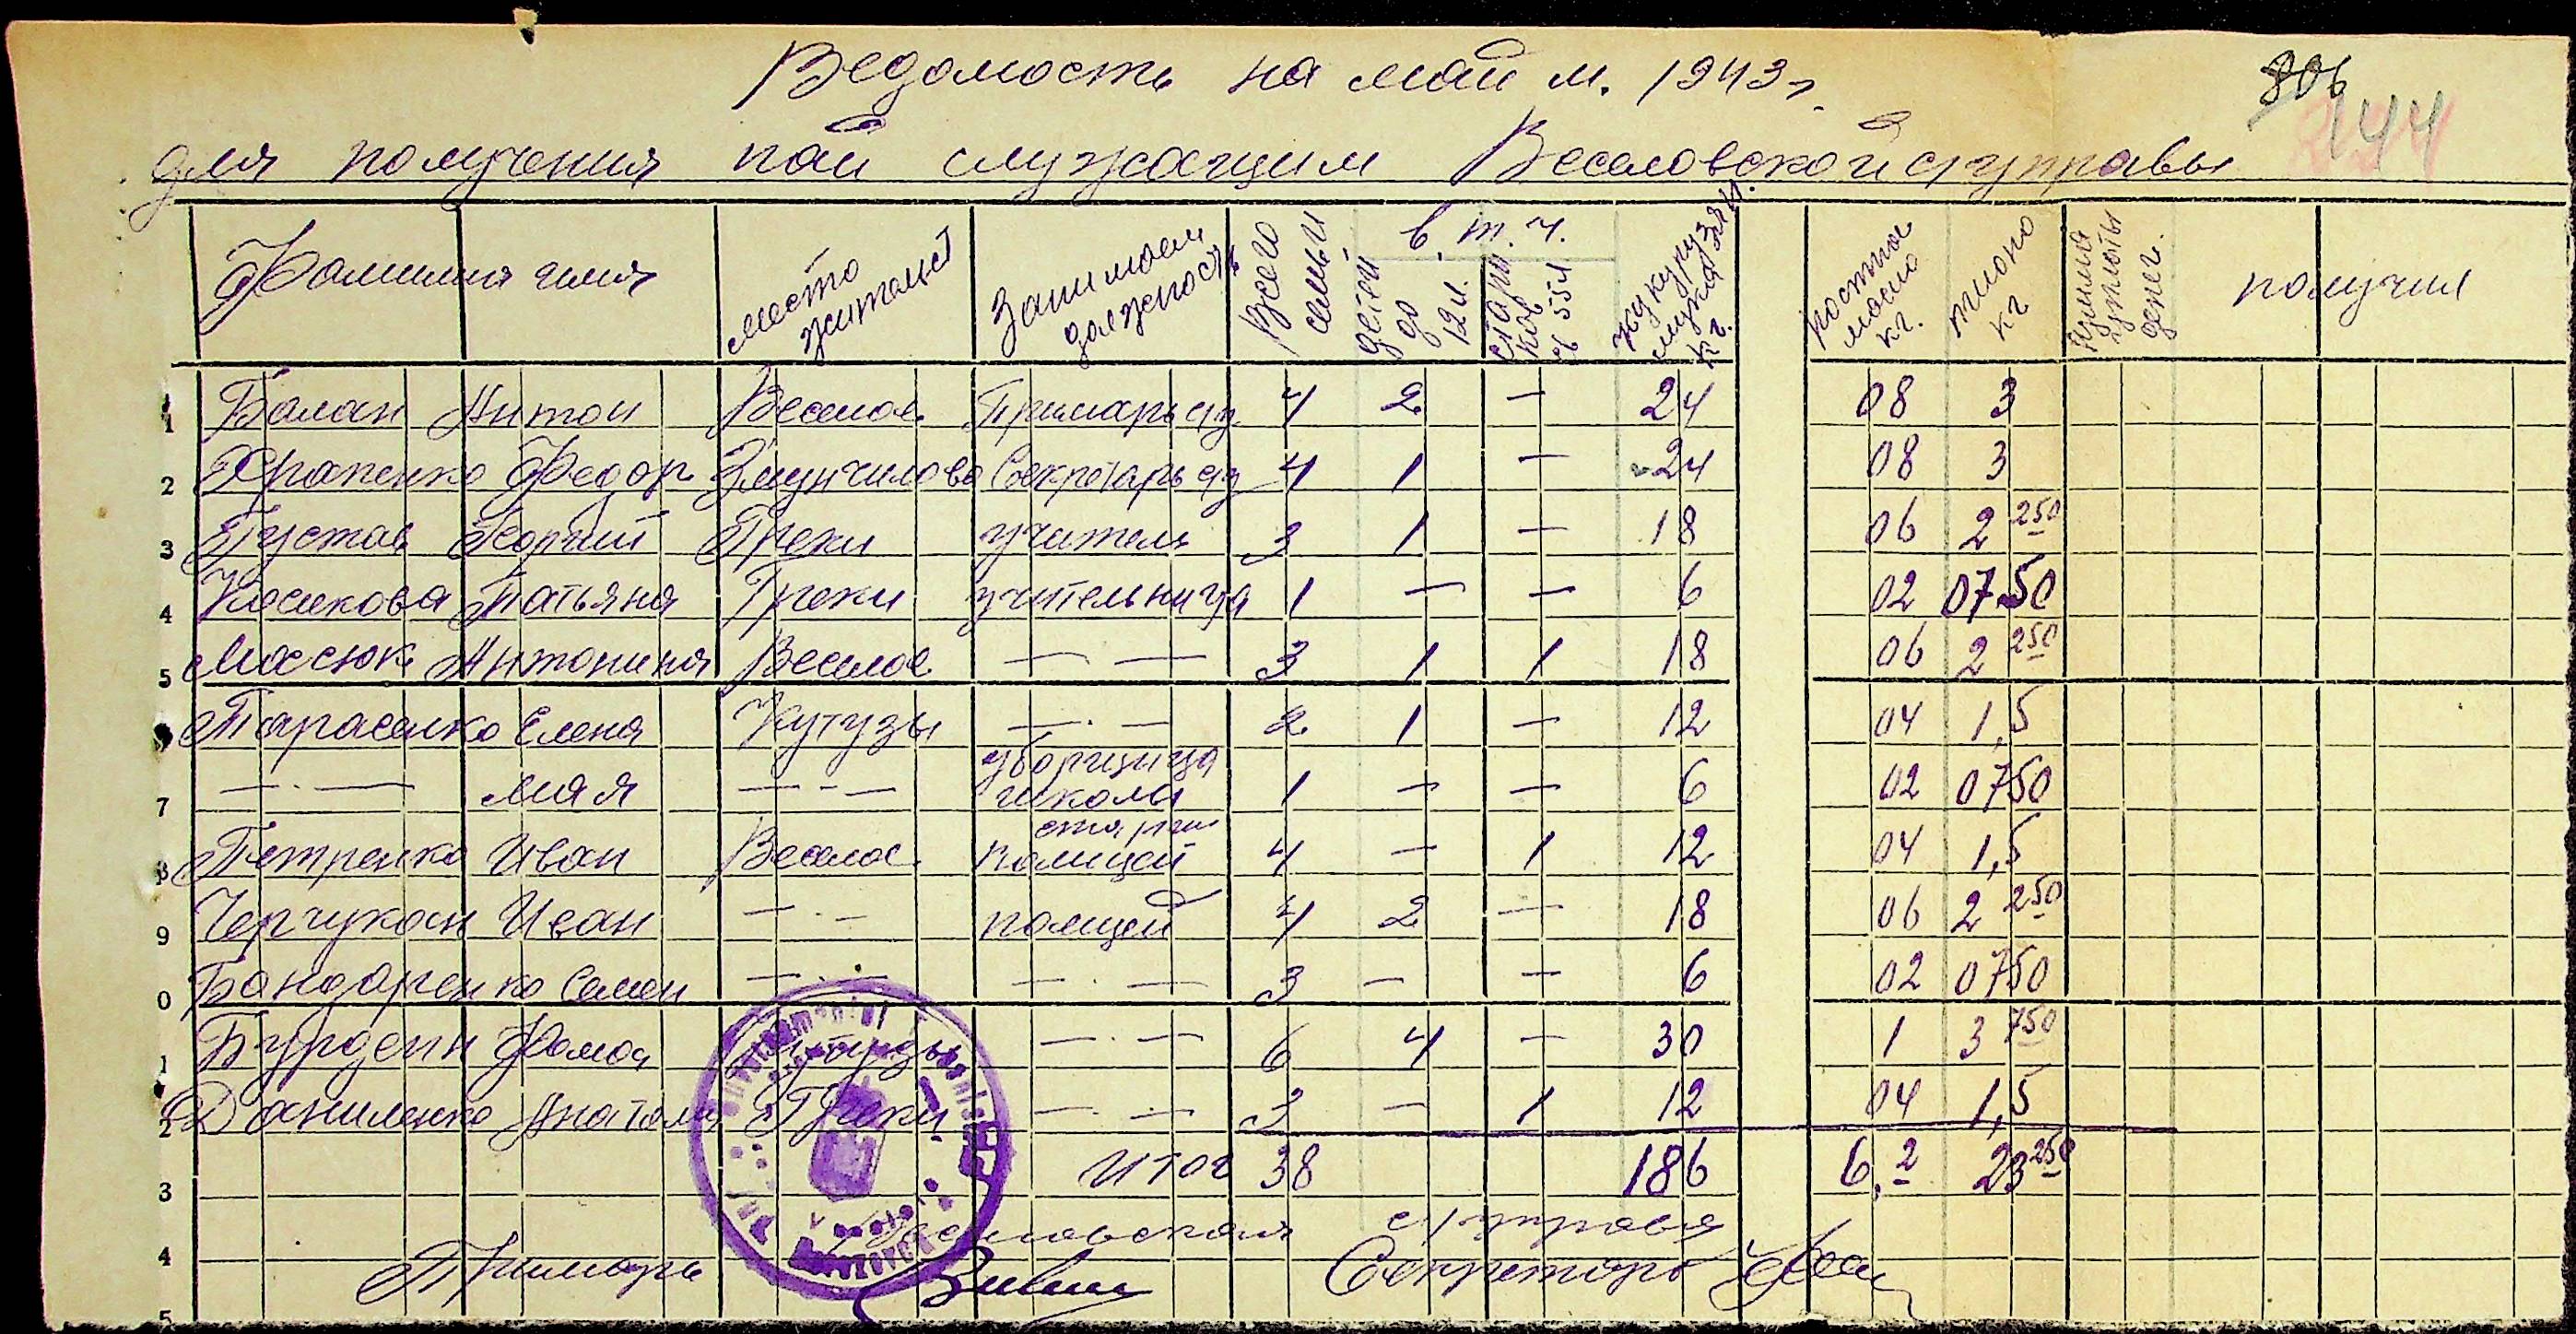 Ведомость на май м. 1943 г.
806
144
для получения пай служащим Веселовской с/управы
Фамилия имя место жительст Занимаем должность Всего семьи в т. ч. детей до 12 л. стариков 55 л кукуруз мука кг. постного масло кг. пшоно кг Сумма уплоты денег. получил
1 Балан Антон Веселое Примарь с/у 4 2 — 24 08 3
2 Храпенко Федор Змунчилово Секретарь с/у 4 1 — 24 08 3
3 Пустов Георгий Греки учитель 3 1 — 18 06 2 250
4 Носикова Татьяна Греки учительница 1 — — 6 02 0750
5 Моссюк Антонина Веселое — — 3 1 1 18 06 2 250
Тарасенко Елена Кутузы — . — 2 1 — 12 04 1,5
7 — . — Мая — . — уборщица школы 1 — — 6 02 0750
8 Петренко Иван Веселое старши полицей 4 — 1 12 04 1,5
9 Черчукан Иван — . — полицей 4 2 — 18 06 2 250
0 Бандаренко Семен — . — — . — 3 — — 6 02 0750
1 Бурдеин Фома Кутузы — . — 6 4 — 30 1 3 750
2 Даниленко Анатоли Греки — . — 3 — 1 12 04 1,5
3 Итог 38 186 6,2 23 250
Веселовская с/управа
4 Примарь Секретарь
5